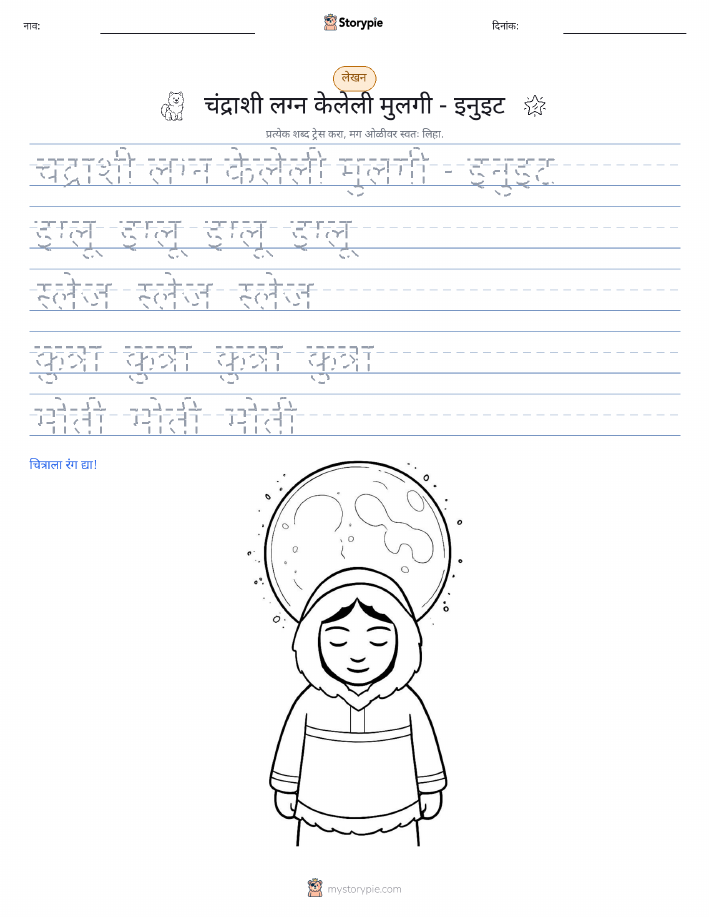 नाव:
Storypie
दिनांक:
लेखन
चंद्राशी लग्न केलेली मुलगी - इनुइट
प्रत्येक शब्द ट्रेस करा, मग ओळीवर स्वतः लिहा.
चंद्राशी लग्न केलेली मुलगी - इनुइट
इग्लू इग्लू इग्लू इग्लू
स्लेज स्लेज स्लेज
कुत्रा कुत्रा कुत्रा कुत्रा
मोती मोती मोती
चित्राला रंग द्या!
mystorypie.com